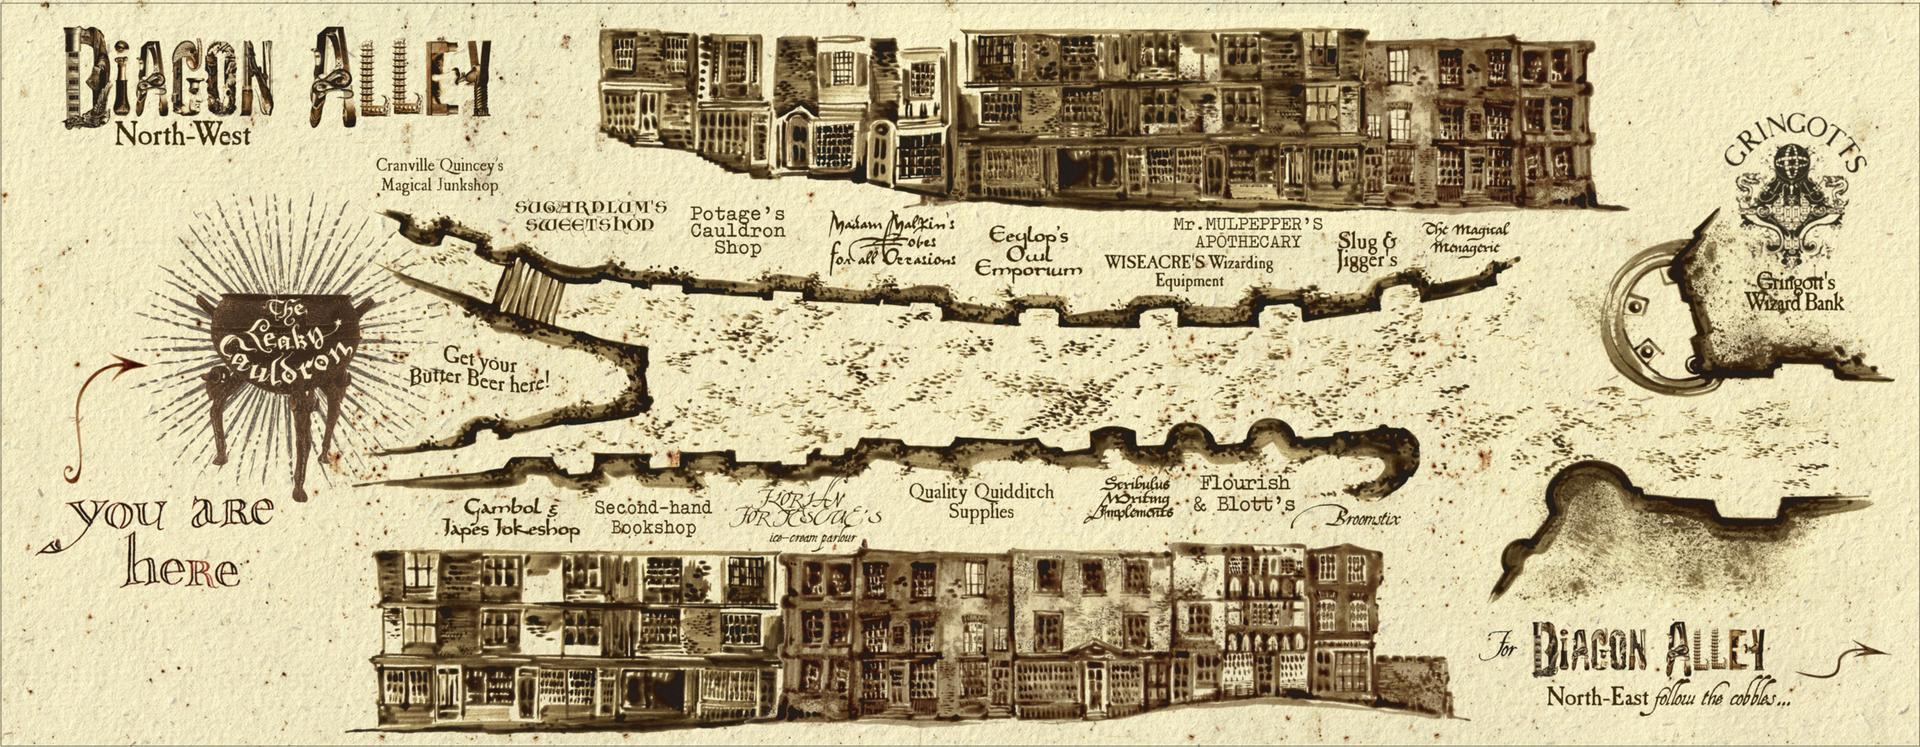 DIAGON ALLEY
North-West
Cranville Quincey's
Magical Junkshop
SUGARPLUM'S
SWEETSHOP
Potage's
Cauldron
Shop
Madam Malkin's
Robes
for all Occasions
Eeylop's
Owl
Emporium
Mr.MULPEPPER'S
APOTHECARY
WISEACRE'S Wizarding
Equipment
Slug &
Jigger's
The Magical
Menagerie
GRINGOTTS
Gringott's
Wizard Bank
The
Leaky
Cauldron
Get your
Butter Beer here!
you are
here
Gambol &
Japes Jokeshop
Second-hand
Bookshop
FLORIAN
FORTESCUE'S
ice-cream parlour
Quality Quidditch
Supplies
Scribulus
Writing
Implements
Flourish
& Blott's
Broomstix
For DIAGON ALLEY
North-East follow the cobbles...